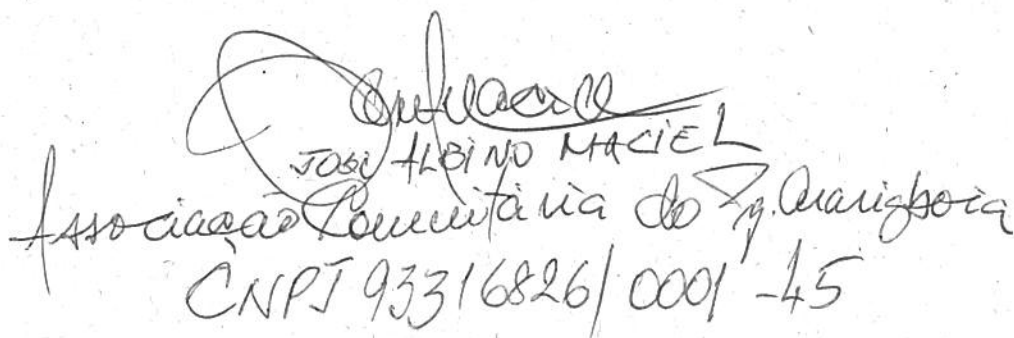 JOSÉ ALBINO MACIEL
Associação Comunitária do Pq. Ararigboia
CNPJ 93316826/0001-45